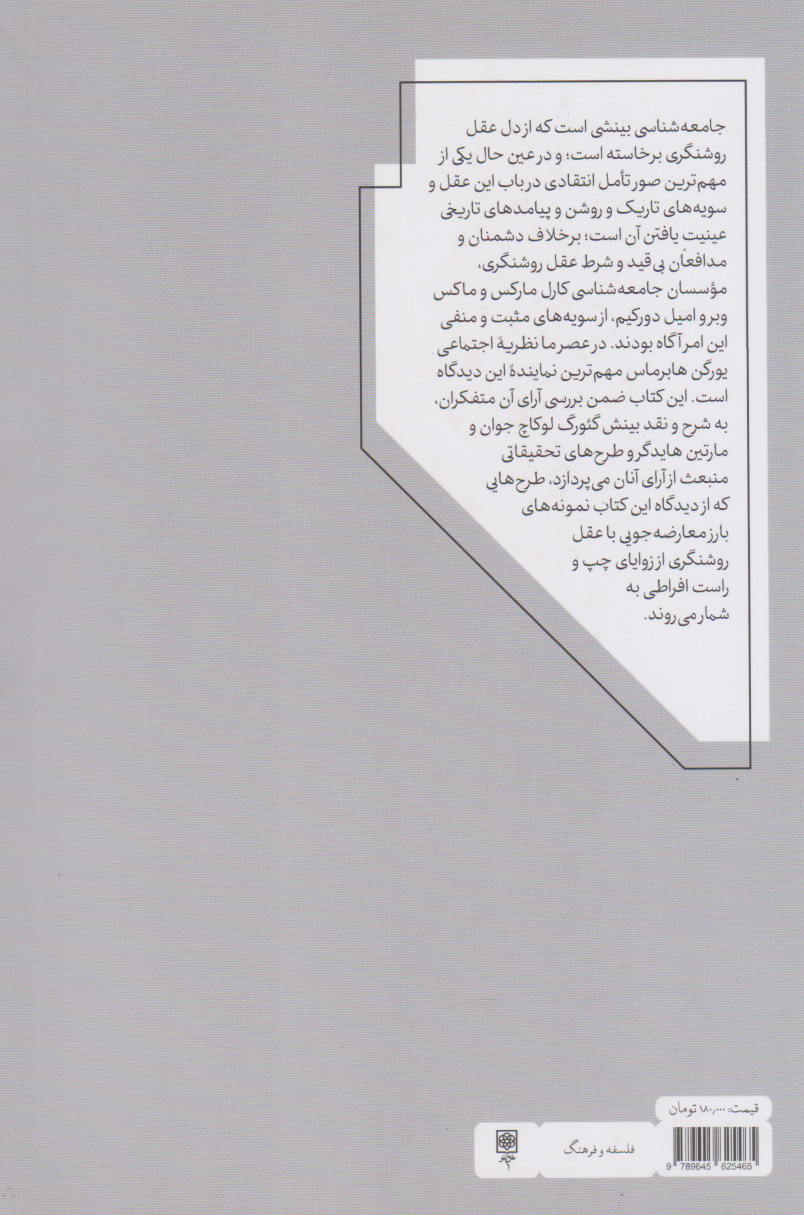 جامعه‌شناسی بینشی است که از دل عقل
روشنگری برخاسته است؛ و در عین حال یکی از
مهم‌ترین صور تأمل انتقادی در باب این عقل و
سویه‌های تاریک و روشن و پیامدهای تاریخی
عینیت یافتن آن است؛ برخلاف دشمنان و
مدافعان بی‌قید و شرط عقل روشنگری،
مؤسسان جامعه‌شناسی کارل مارکس و ماکس
وبر و امیل دورکیم، از سویه‌های مثبت و منفی
این امر آگاه بودند. در عصر ما نظریهٔ اجتماعی
یورگن هابرماس مهم‌ترین نمایندهٔ این دیدگاه
است. این کتاب ضمن بررسی آرای آن متفکران،
به شرح و نقد بینش گئورگ لوکاچ جوان و
مارتین هایدگر و طرح‌های تحقیقاتی
منبعث از آرای آنان می‌پردازد، طرح‌هایی
که از دیدگاه این کتاب نمونه‌های
بارز معارضه‌جویی با عقل
روشنگری از زوایای چپ و
راست افراطی به
شمار می‌روند.
قیمت: ۱۸۰٫۰۰۰ تومان
فلسفه و فرهنگ
9 789645 625465